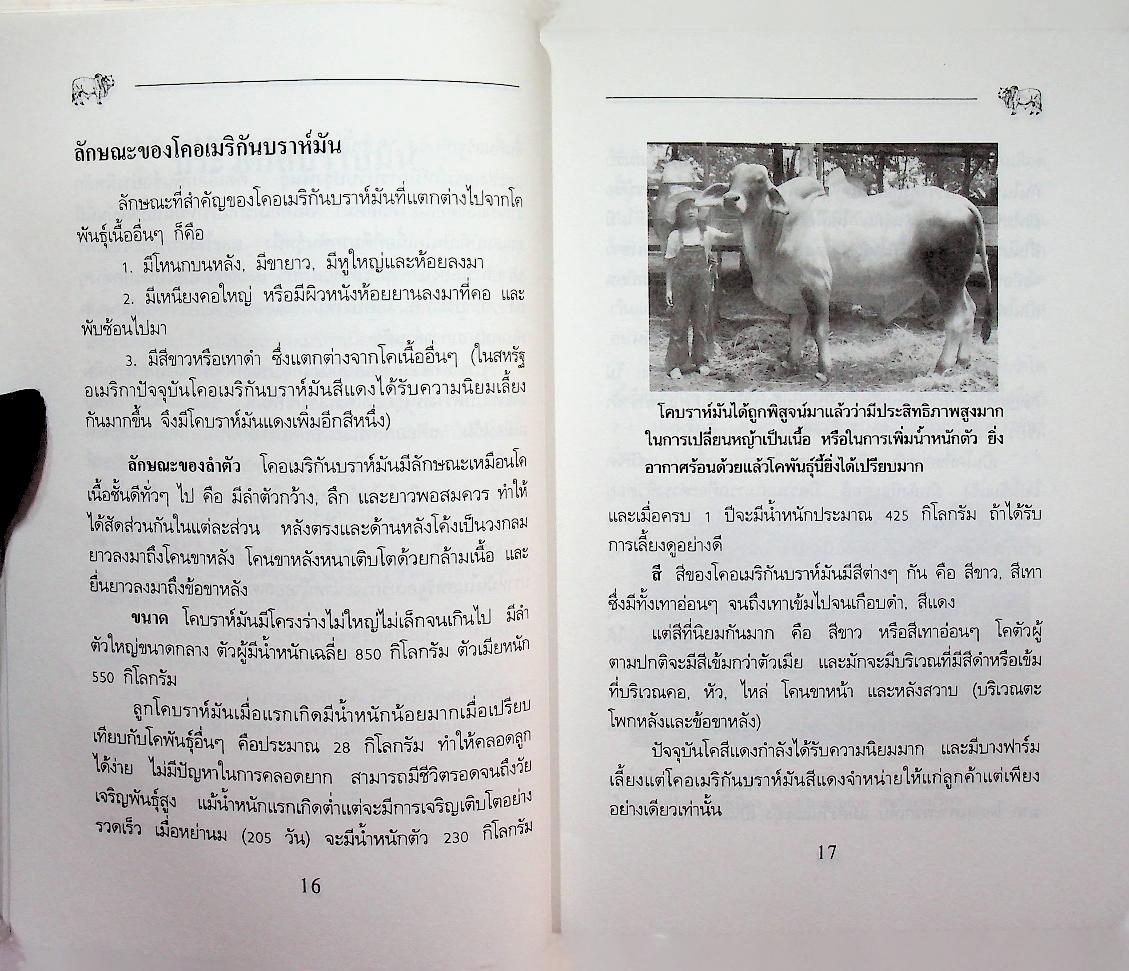 ลักษณะของโคอเมริกันบราห์มัน
ลักษณะที่สำคัญของโคอเมริกันบราห์มันที่แตกต่างไปจากโค
พันธุ์เนื้ออื่นๆ ก็คือ
1. มีโหนกบนหลัง, มีขายาว, มีหูใหญ่และห้อยลงมา
2. มีเหนียงคอใหญ่ หรือมีผิวหนังห้อยยานลงมาที่คอ และ
พับซ้อนไปมา
3. มีสีขาวหรือเทาดำ ซึ่งแตกต่างจากโคเนื้ออื่นๆ (ในสหรัฐ
อเมริกาปัจจุบันโคอเมริกันบราห์มันสีแดงได้รับความนิยมเลี้ยง
กันมากขึ้น จึงมีโคบราห์มันแดงเพิ่มอีกสีหนึ่ง)
ลักษณะของลำตัว โคอเมริกันบราห์มันมีลักษณะเหมือนโค
เนื้อชั้นดีทั่วๆ ไป คือ มีลำตัวกว้าง, ลึก และยาวพอสมควร ทำให้
ได้สัดส่วนกันในแต่ละส่วน หลังตรงและด้านหลังโค้งเป็นวงกลม
ยาวลงมาถึงโคนขาหลัง โคนขาหลังหนาเติบโตด้วยกล้ามเนื้อ และ
ยื่นยาวลงมาถึงข้อขาหลัง
ขนาด โคบราห์มันมีโครงร่างไม่ใหญ่ไม่เล็กจนเกินไป มีลำ
ตัวใหญ่ขนาดกลาง ตัวผู้มีน้ำหนักเฉลี่ย 850 กิโลกรัม ตัวเมียหนัก
550 กิโลกรัม
ลูกโคบราห์มันเมื่อแรกเกิดมีน้ำหนักน้อยมากเมื่อเปรียบ
เทียบกับโคพันธุ์อื่นๆ คือประมาณ 28 กิโลกรัม ทำให้คลอดลูก
ได้ง่าย ไม่มีปัญหาในการคลอดยาก สามารถมีชีวิตรอดจนถึงวัย
เจริญพันธุ์สูง แม้น้ำหนักแรกเกิดต่ำแต่จะมีการเจริญเติบโตอย่าง
รวดเร็ว เมื่อหย่านม (205 วัน) จะมีน้ำหนักตัว 230 กิโลกรัม
16
โคบราห์มันได้ถูกพิสูจน์มาแล้วว่ามีประสิทธิภาพสูงมาก
ในการเปลี่ยนหญ้าเป็นเนื้อ หรือในการเพิ่มน้ำหนักตัว ยิ่ง
อากาศร้อนด้วยแล้วโคพันธุ์นี้ยิ่งได้เปรียบมาก
และเมื่อครบ 1 ปีจะมีน้ำหนักประมาณ 425 กิโลกรัม ถ้าได้รับ
การเลี้ยงดูอย่างดี
สี สีของโคอเมริกันบราห์มันมีสีต่างๆ กัน คือ สีขาว, สีเทา
ซึ่งมีทั้งเทาอ่อนๆ จนถึงเทาเข้มไปจนเกือบดำ, สีแดง
แต่สีที่นิยมกันมาก คือ สีขาว หรือสีเทาอ่อนๆ โคตัวผู้
ตามปกติจะมีสีเข้มกว่าตัวเมีย และมักจะมีบริเวณที่มีสีดำหรือเข้ม
ที่บริเวณคอ, หัว, ไหล่ โคนขาหน้า และหลังสวาบ (บริเวณตะ
โพกหลังและข้อขาหลัง)
ปัจจุบันโคสีแดงกำลังได้รับความนิยมมาก และมีบางฟาร์ม
เลี้ยงแต่โคอเมริกันบราห์มันสีแดงจำหน่ายให้แก่ลูกค้าแต่เพียง
อย่างเดียวเท่านั้น
17